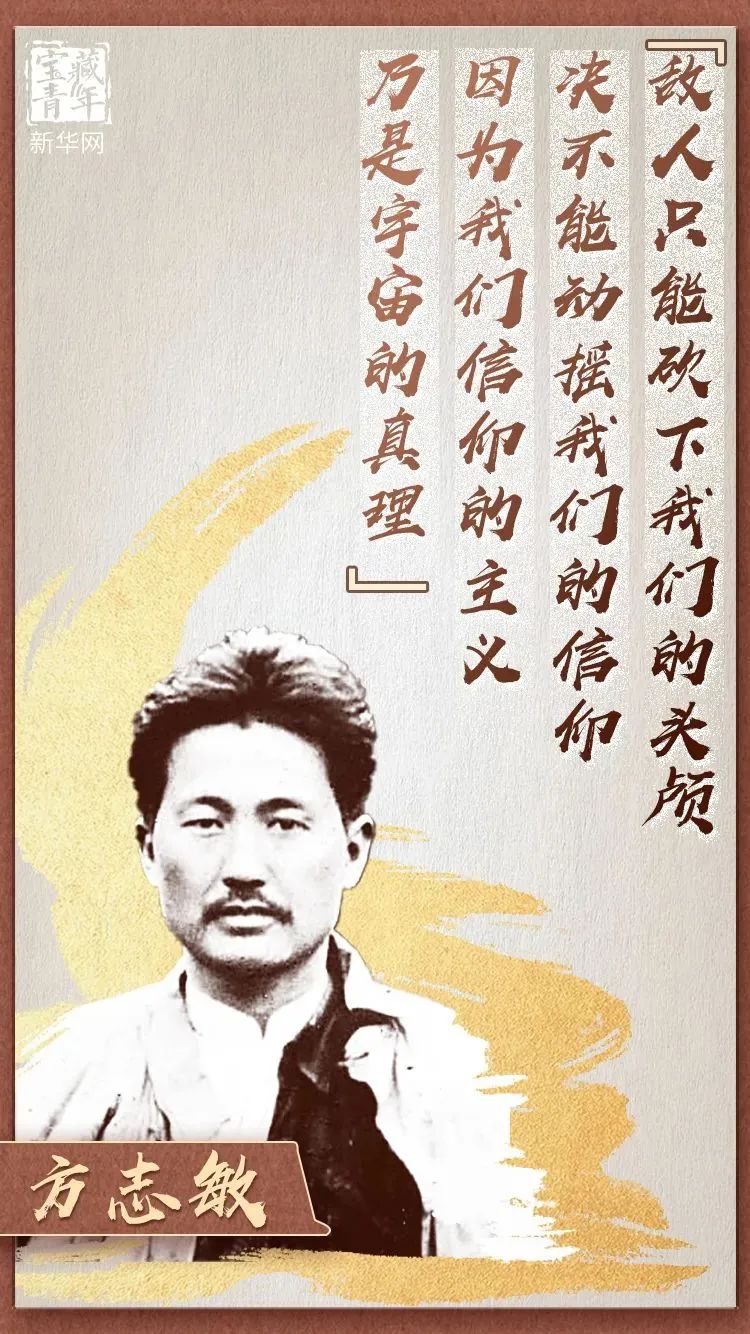 『敌人只能砍下我们的头颅
决不能动摇我们的信仰
因为我们信仰的主义
乃是宇宙的真理』
宝藏
青年
新华网
方志敏